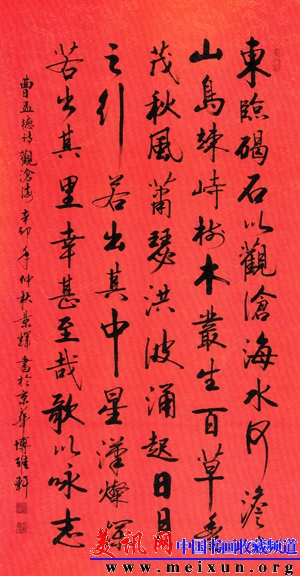 東臨碣石以觀滄海水何澹々
山島竦峙樹木叢生百草豐
茂秋風蕭瑟洪波涌起日月
之行若出其中星漢燦爛
若出其里幸甚至哉歌以咏志
曹孟德詩觀滄海辛卯年仲秋景輝書於京華博雅軒
美讯网 中国书画收藏频道
www.meixun.org